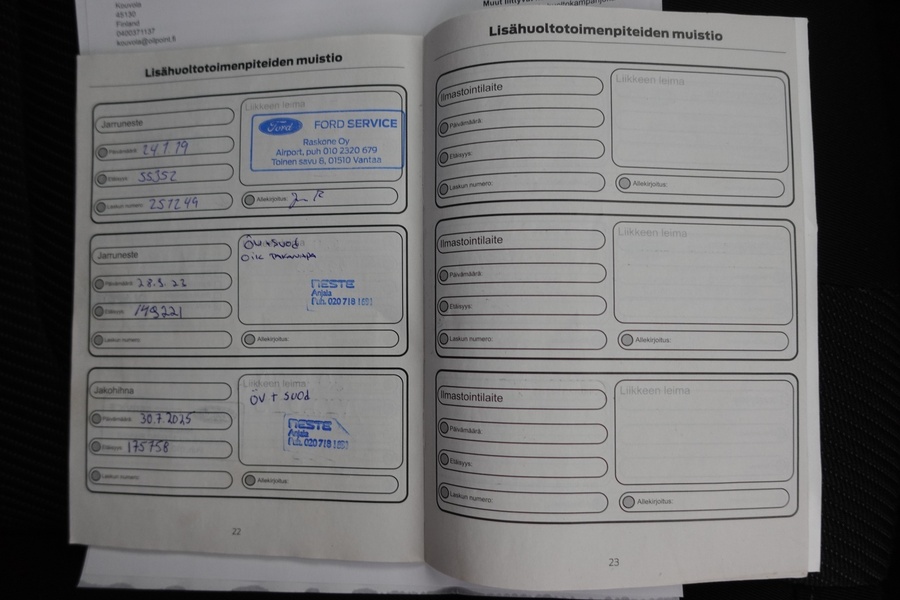 Kouvola
45130
Finland
0400371137
kouvola@oilpoint.fi
Lisähuoltotoimenpiteiden muistio
Jarruneste
Päivämäärä: 24.1.19
Etäisyys: 55352
Laskun numero: 251249
Liikkeen leima
Ford FORD SERVICE
Raskone Oy
Airport, puh 010 2320 679
Toinen savu 6, 01510 Vantaa
Allekirjoitus:
Jarruneste
Päivämäärä: 28.3.23
Etäisyys: 149221
Laskun numero:
ÖV+SUOD
OIK
NESTE
Anjala
Puh. 020 718 1551
Allekirjoitus:
Jakohihna
Päivämäärä: 30.7.2025
Etäisyys: 175758
Laskun numero:
Liikkeen leima
ÖV + SUOD
NESTE
Anjala
Puh. 020 718 1551
Allekirjoitus:
22
Muut
Lisähuoltotoimenpiteiden muistio
Ilmastointilaite
Päivämäärä:
Etäisyys:
Laskun numero:
Liikkeen leima
Allekirjoitus:
Ilmastointilaite
Päivämäärä:
Etäisyys:
Laskun numero:
Liikkeen leima
Allekirjoitus:
Ilmastointilaite
Päivämäärä:
Etäisyys:
Laskun numero:
Liikkeen leima
Allekirjoitus:
23